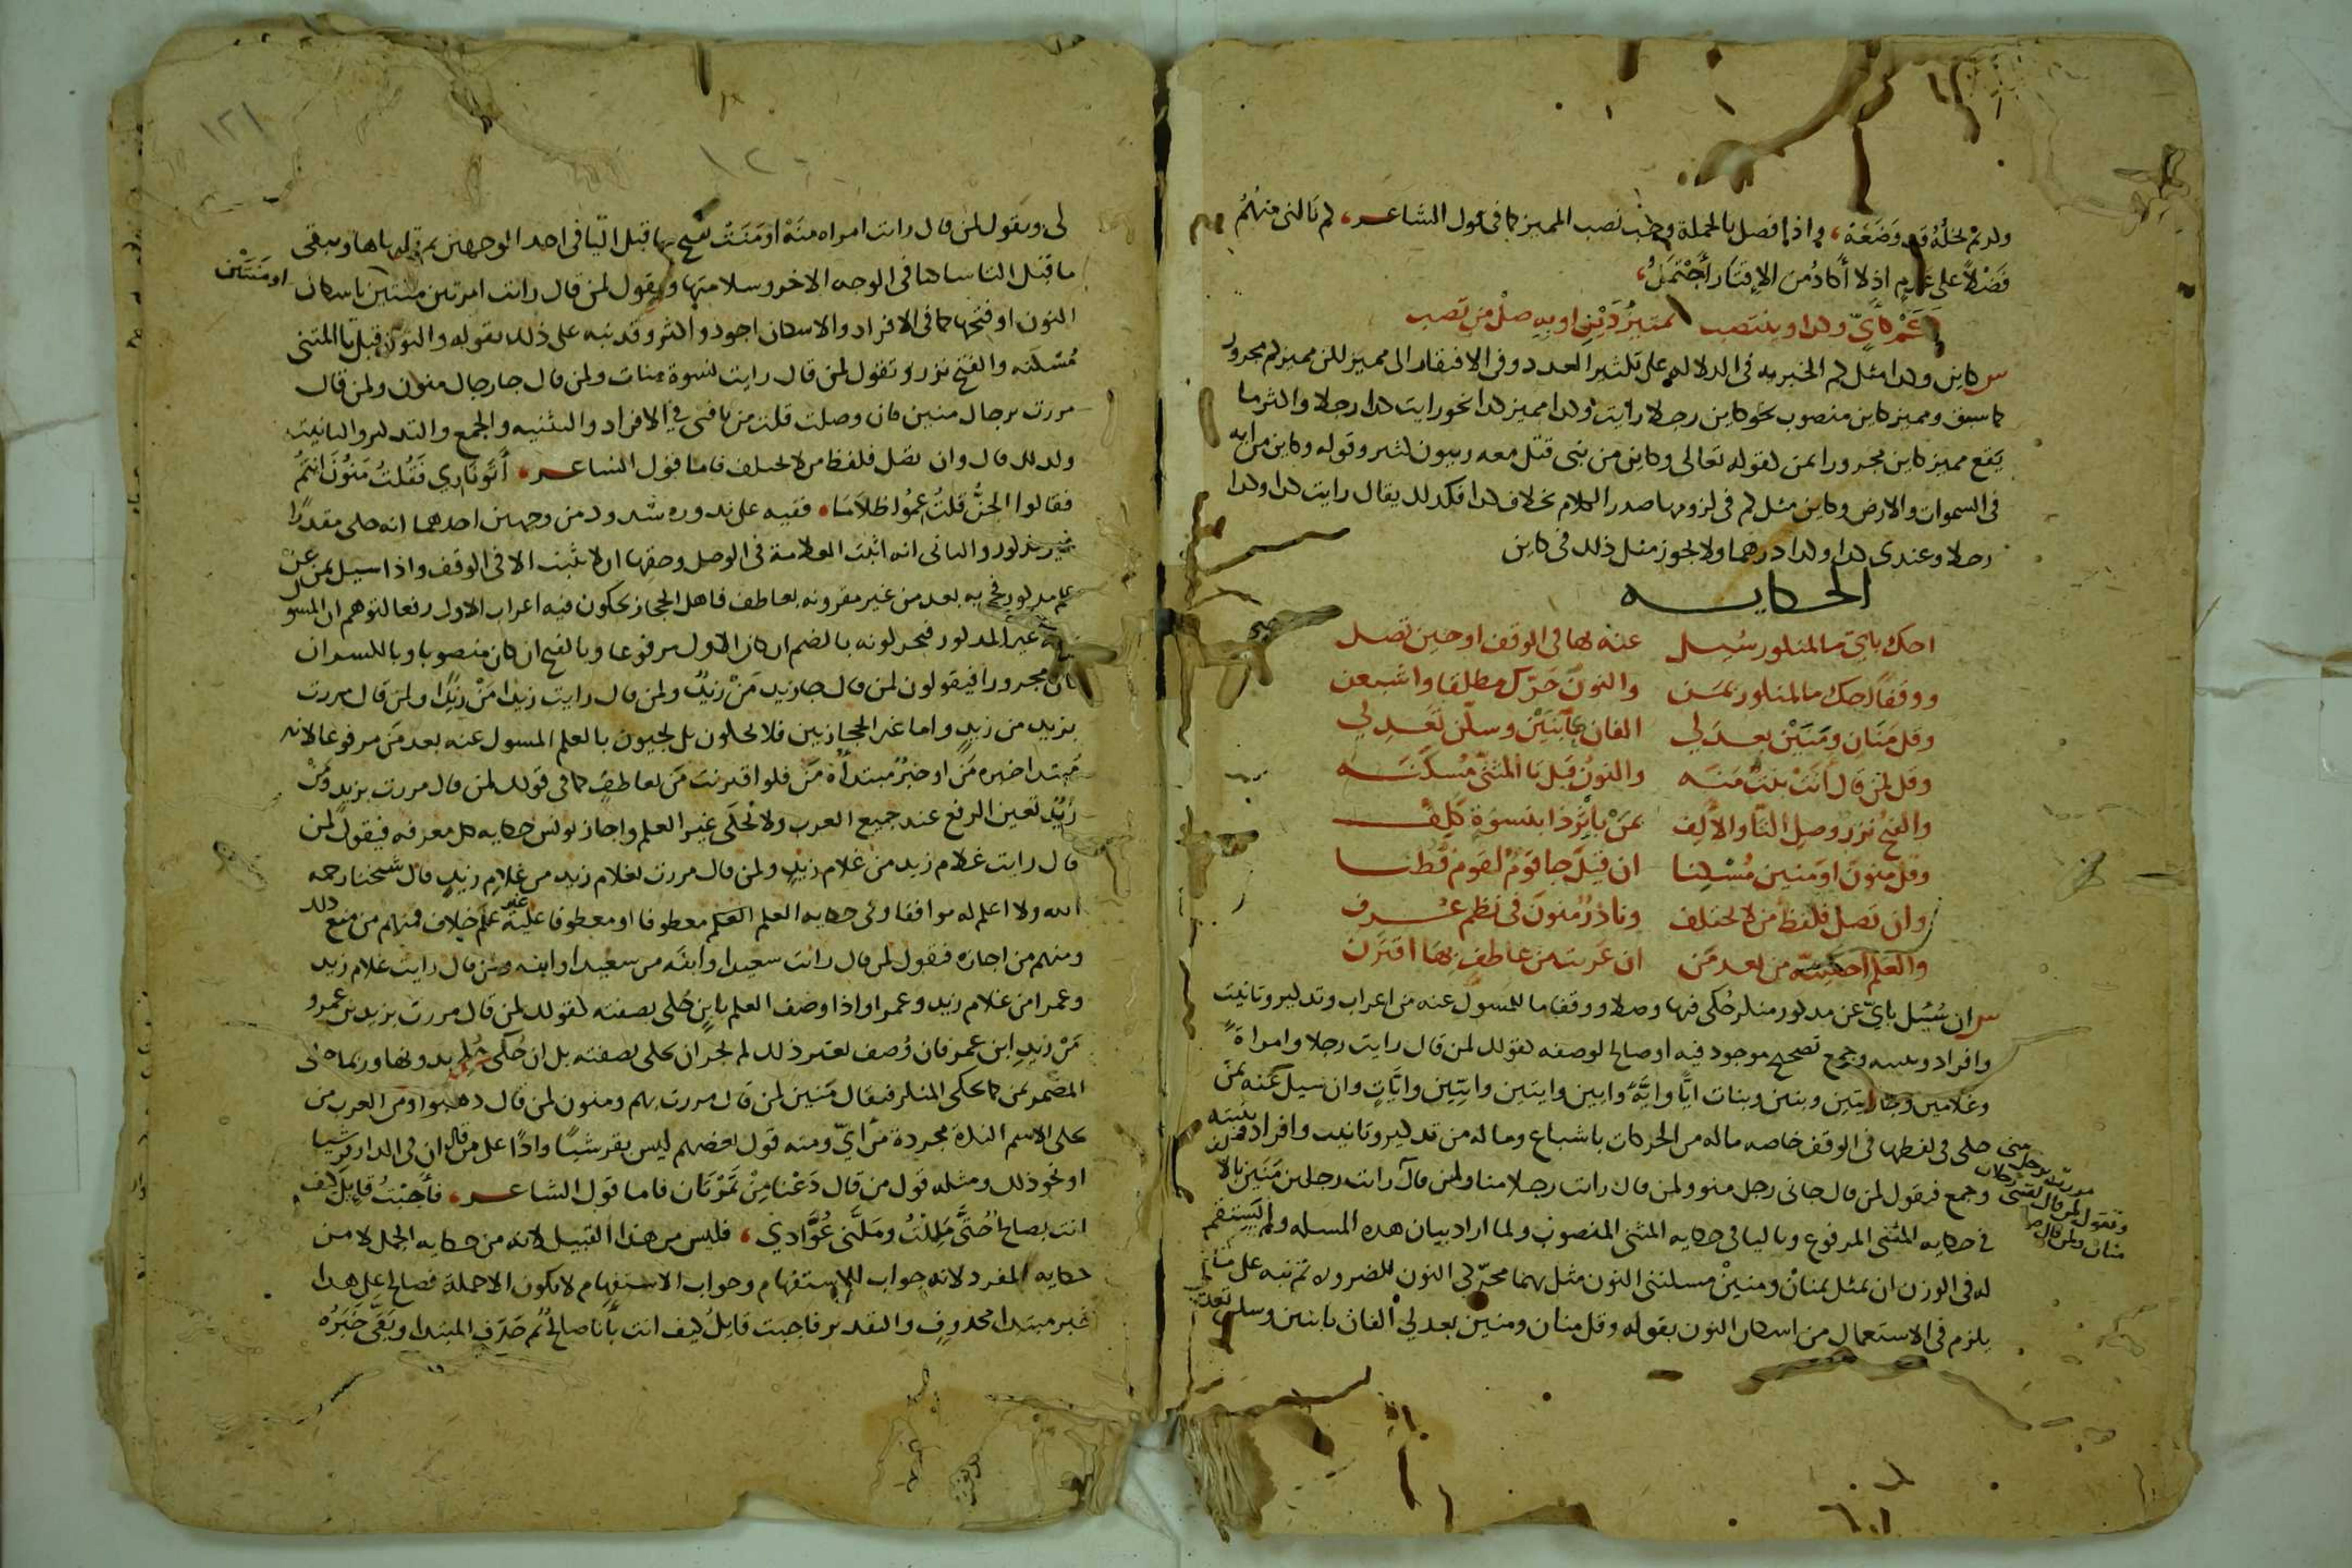 ولم تخله قد وضعه، واذا فصل بالجملة وجب نصب المميز كما في قول الشاعر، كم نالني منهم
فضلا على عدم اذ لا اكاد من الاقتار احتمل،
ككم كاي وكذا وينتصب تمييز ذين او به صل من تصب
س كاين وكذا مثل كم الخبريه في الدلاله على تكثير العدد وفي الافتقار الى مميز لكن مميز كم مجرور
كما سبق ومميز كاين منصوب نحو كاين رجلا رايت وكذا مميز كذا نحو رايت كذا رجلا واكثر ما
يقع مميز كاين مجرورا بمن كقوله تعالى وكاين من نبي قتل معه ربيون كثير وقوله وكاين من ايه
في السموات والارض وكاين مثل كم في لزومها صدر الكلام بخلاف كذا فلذلك يقال رايت كذا وكذا
رجلا وعندي كذا وكذا درهما ولا يجوز مثل ذلك في كاين
الحكايه
احك باي ما لمنكور سئل عنه بها في الوقف او حين تصل
ووقفا احك ما لمنكور بمن والنون حرك مطلقا واشبعن
وقل منان ومنين بعد لي الفان بابنين وسكن تعدل
وقل لمن قال اتت بنت منه والنون قبل تا المثنى مسكنه
والفتح نزر وصل التا والالف بمن باثر ذا بنسوة كلف
وقل منون او منين مسكنا ان قيل جا قوم لقوم فطنا
وان تصل فلفظ من لا يختلف ونادر منون في نظم عرف
والعلم احكينه من بعد من ان عريت من عاطف بها اقترن
س ان سئل باي عن مذكور منكر حكي فيها وصلا ووقفا ما للمسول عنه من اعراب وتذكير وتانيث
وافراد وتثنيه وجمع تصحيح موجود فيه او صالح لوصفه كقولك لمن قال رايت رجلا وامراة
وغلامين وجاريتين وبنين وبنات ايا واية وايين وايتين وايين وايات وان سيل عنه بمن
حكي في لفظها في الوقف خاصه ما له من الحركات باشباع وما له من تذكير وتانيث وافراد وتثنيه
وجمع فيقول لمن قال جاني رجل منو ولمن قال رايت رجلا منا ولمن قال رايت رجلين منين بالا
في حكايه المثنى المرفوع وباليا في حكايه المثنى المنصوب ولما اراد بيان هذه المسله ولم يستقم
له في الوزن ان يمثل بمنان ومنين مسكنتي النون مثل بهما محركي النون للضرورة ثم نبه على ما
يلزم في الاستعمال من اسكان النون بقوله وقل منان ومنين بعد لي الفان بابنين وسكن تعد
مررت برجل مني
وتقول لمن قال لقيني رجلان
منان ولمن قال
١٢٠
١٢١
لي ويقول لمن قال رايت امراه منه او منت تفتح ما قبل التا في احد الوجهين بم قلبها ها وتبقي
ما قبل التا ساكنا في الوجه الاخر وسلامتها ويقول لمن قال رايت امرتين منتين باسكان او منتين
النون او فتحها كما في الافراد والاسكان اجود واكثر وقد نبه على ذلك بقوله والنون قبل تا المثنى
مسكنه والفتح نزر وتقول لمن قال رايت نسوة منات ولمن قال جا رجال منون ولمن قال
مررت برجال منين فان وصلت قلت من يا فتى في الافراد والتثنيه والجمع والتذكير والتانيث
ولذلك قال وان تصل فلفظ من لا يختلف فاما قول الشاعر، اتوا ناري فقلت منون انتم
فقالوا الجن قلت عموا ظلاما، ففيه على ندوره شذوذ من وجهين احدهما انه حكى مقدرا
غير مذكور والثاني انه اثبت العلامة في الوصل وحقها ان لا تثبت الا في الوقف واذا سيل بمن عن
علم مذكور فجي به بعد من غير مقرونه بعاطف فاهل الحجاز يحكون فيه اعراب الاول رفعا لتوهم ان المسول
عنه غير المذكور فيحركونه بالضم ان كان الاول مرفوعا وبالفتح ان كان منصوبا وبالكسر ان
كان مجرورا فيقولون لمن قال جا زيد من زيد ولمن قال رايت زيدا من زيدا ولمن قال مررت
بزيد من زيد واما غير الحجازيين فلا يحكون بل يجيون بالعلم المسول عنه بعد من مرفوعا لانه
مبتدا خبره من او خبر مبتداه من فلو اقترنت من بعاطف كما في قولك لمن قال مررت بزيد ومن
زيد تعين الرفع عند جميع العرب ولا تحكى غير العلم واجاز يونس حكايه كل معرفه فيقول لمن
قال رايت غلام زيد من غلام زيد ولمن قال مررت بغلام زيد من غلام زيد قال شيخنا رحمه
الله ولا اعلم له موافقا وفي حكايه العلم معطوفا او معطوفا عليه غير علم خلاف فمنهم من منع ذلك
ومنهم من اجازه فيقول لمن قال رايت سعيدا وابنه من سعيدا وابنه ولمن قال رايت غلام زيد
وعمرا من غلام زيد وعمرا واذا وصف العلم بابن حكي بصفته كقولك لمن قال مررت بزيد بن عمرو
من زيد ابن عمرو فان وصف بغير ذلك لم يجز ان يحكى بصفته بل ان حكي حكي بدونها وربما حكى
المضمر بمن كما يحكى المنكر فيقال منين لمن قال مررت بهم ومنون لمن قال ذهبوا ومن العرب من
يحكي الاسم النكرة مجردة من اي ومنه قول بعضهم ليس بقرشيا رادا على من قال ان في الدار قرشيا
او نحو ذلك ومثله قول من قال دعنا من تمرتان فاما قول الشاعر، فاجبت قايل كيف
انت بصالح حتى مللت وملني عوادي، فليس من هذا القبيل لانه من حكايه الجمل لا من
حكايه المفرد لانه جواب للاستفهام وجواب الاستفهام لا يكون الا جملة فصالح على هذا
خبر مبتدا محذوف والتقدير فاجبت قايل كيف انت بانا صالح ثم حذف المبتدا وبقى خبره